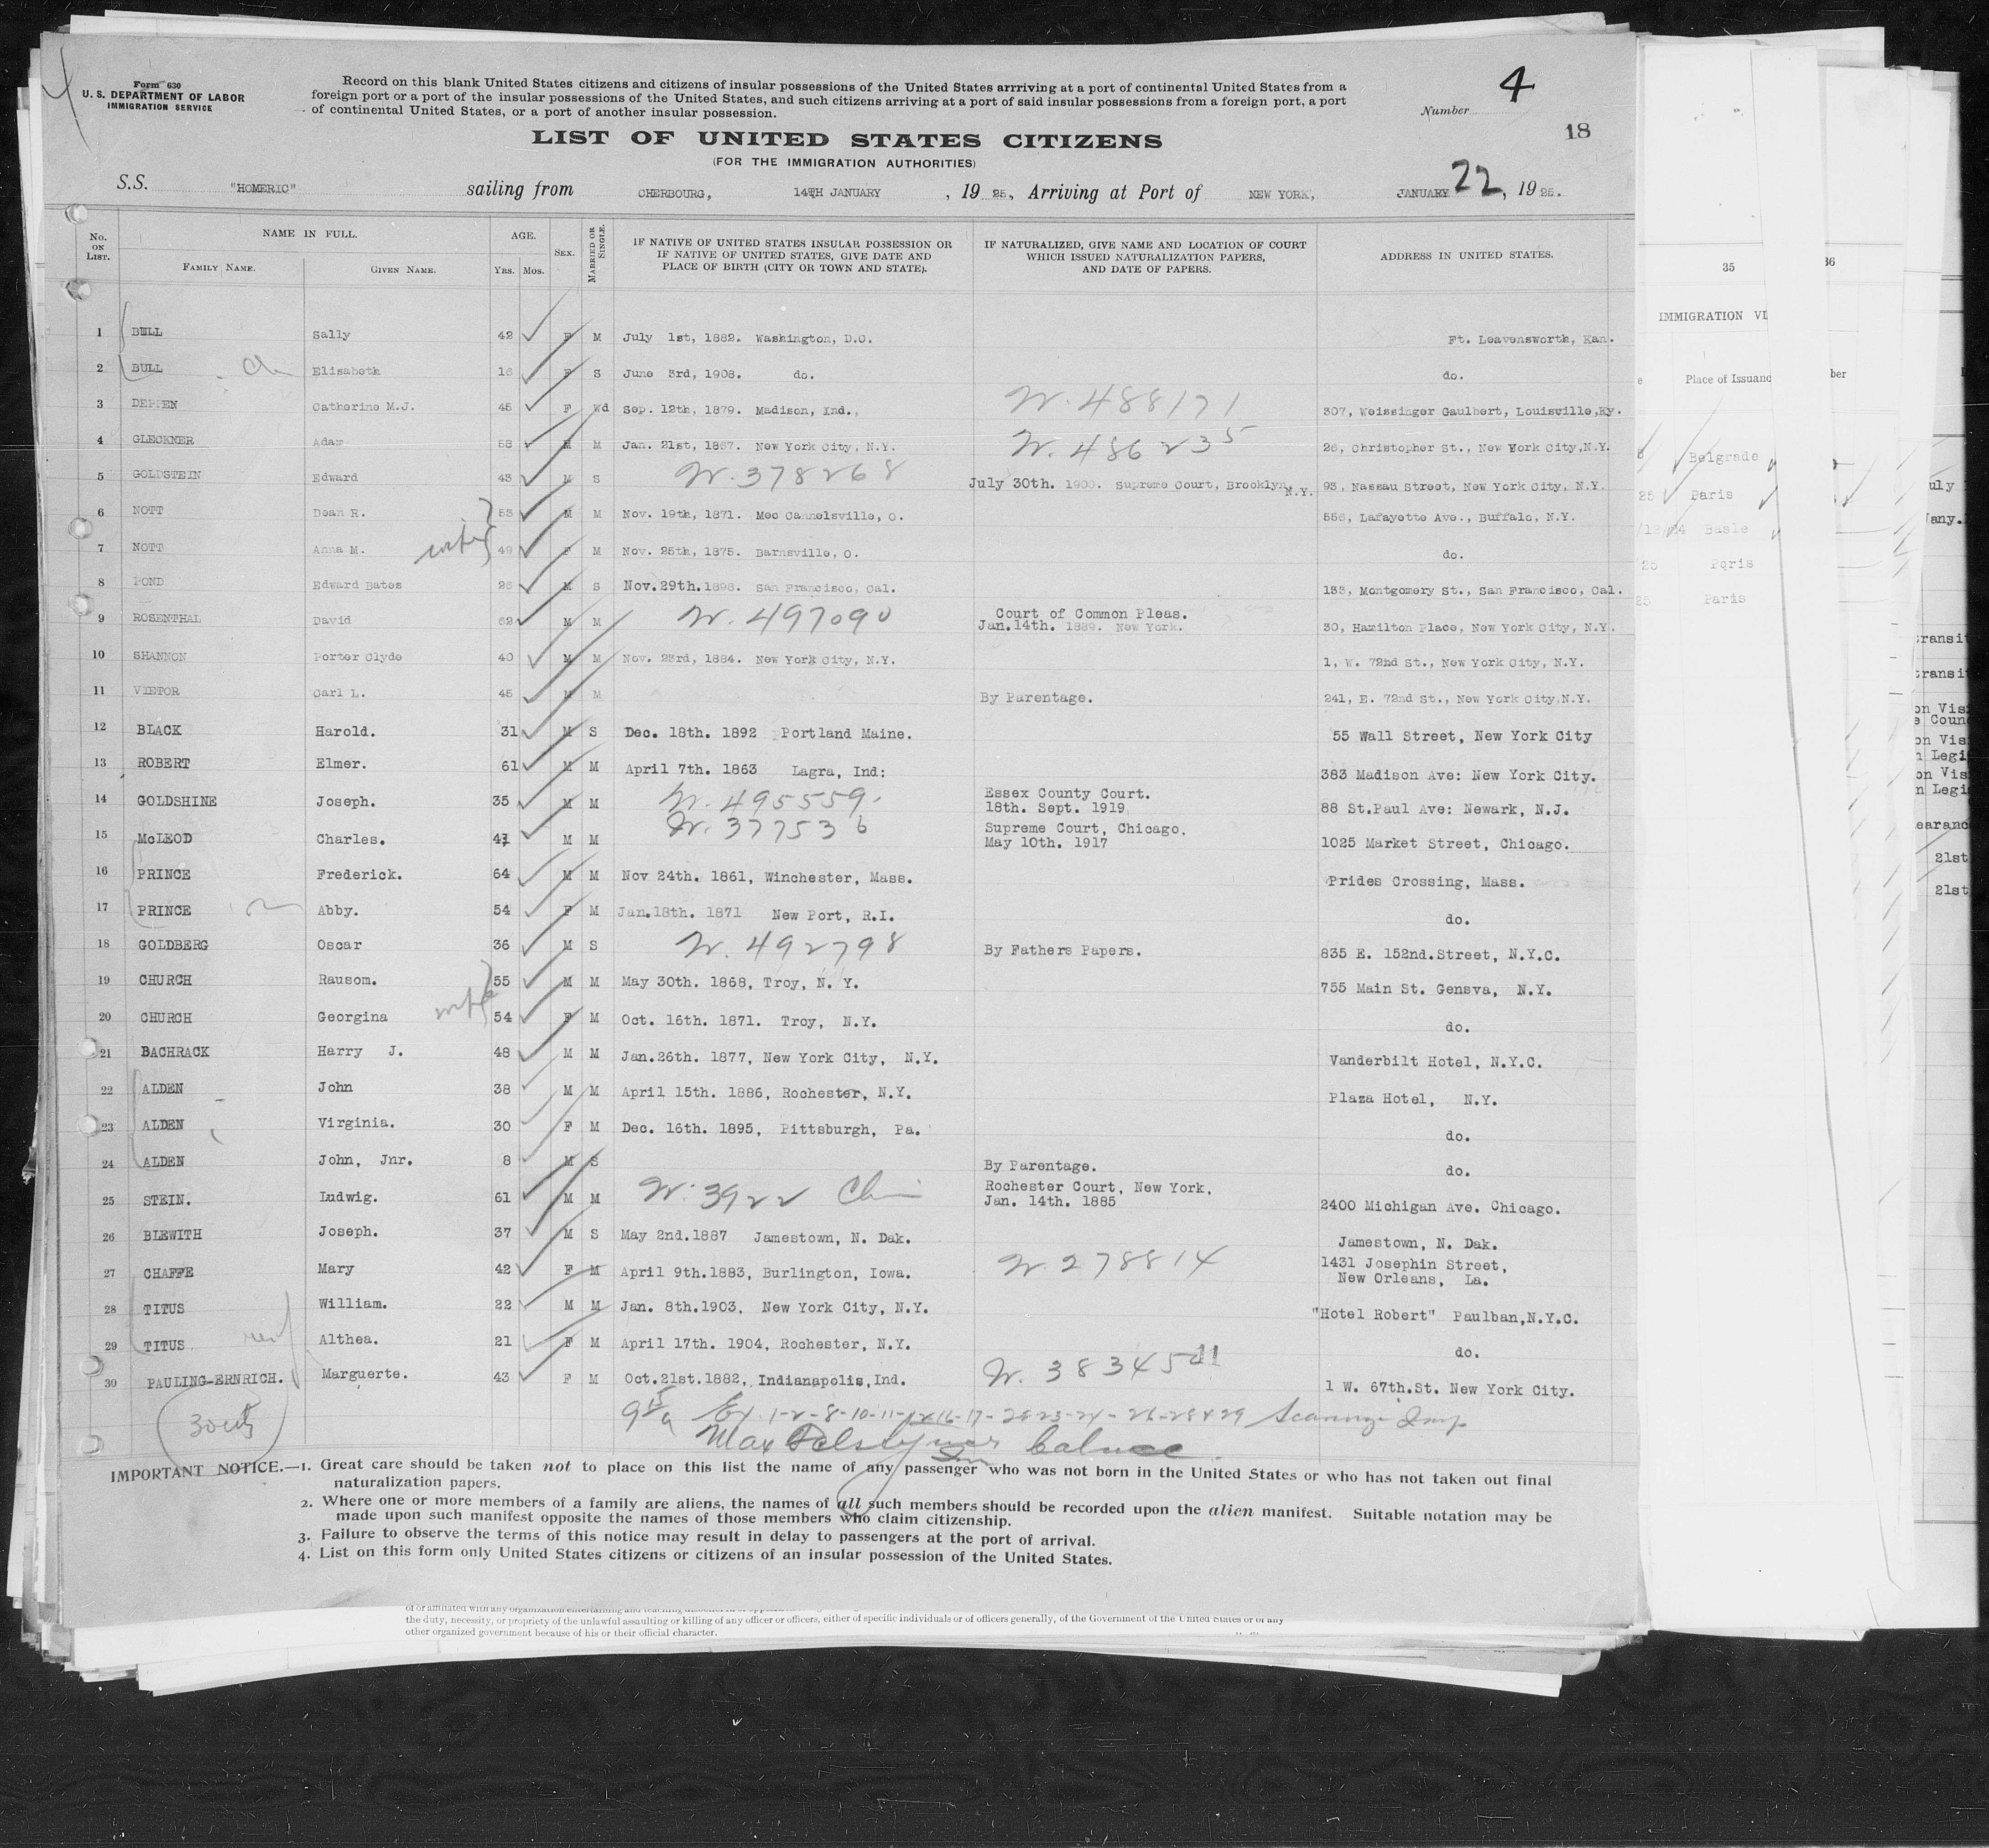 Form 630
U. S. DEPARTMENT OF LABOR
IMMIGRATION SERVICE
Record on this blank United States citizens and citizens of insular possessions of the United States arrriving at a port of continental United States from a
foreign port or a port of the insular possessions of the United States, and such citizens arriving at a port of said insular possessions from a foreign port, a port
of continental United States, or a port of another insular possession.
Number 4
18
LIST OF UNITED STATES CITIZENS
(FOR THE IMMIGRATION AUTHORITIES)
S.S. "HOMERIC" sailing from CHERBOURG, 14TH JANUARY, 19 25, Arriving at Port of NEW YORK, JANUARY 22, 19 25.
No. ON LIST. NAME IN FULL. FAMILY NAME. GIVEN NAME. AGE. Yrs. Mos. SEX. MARRIED OR SINGLE. IF NATIVE OF UNITED STATES INSULAR POSSESSION OR IF NATIVE OF UNITED STATES, GIVE DATE AND PLACE OF BIRTH (CITY OR TOWN AND STATE). IF NATURALIZED, GIVE NAME AND LOCATION OF COURT WHICH ISSUED NATURALIZATION PAPERS, AND DATE OF PAPERS. ADDRESS IN UNITED STATES.
1 BULL Sally 42 F M July 1st, 1882. Washington, D.C. Ft. Leavensworth, Kan.
2 BULL Elisabeth 16 F S June 3rd, 1908. do. do.
3 DEPPEN Catherine M.J. 45 F Wd Sep. 12th, 1879. Madison, Ind., N. 488171 307, Weissinger Gaulbert, Louisville, Ky.
4 GLECKNER Adam 58 M M Jan. 21st, 1867. New York City, N.Y. N. 486235 26, Christopher St., New York City, N.Y.
5 GOLDSTEIN Edward 43 M S N. 378268 July 30th. 1900. Supreme Court, Brooklyn, N.Y. 93, Nassau Street, New York City, N.Y.
6 NOTT Dean R. 53 M M Nov. 19th, 1871. Mec Cannelsville, O. 556, Lafayette Ave., Buffalo, N.Y.
7 NOTT Anna M. wife 49 F M Nov. 25th, 1875. Barnsville, O. do.
8 POND Edward Bates 26 M S Nov. 29th. 1898. San Francisco, Cal. 133, Montgomery St., San Francisco, Cal.
9 ROSENTHAL David 62 M M N. 497090 Court of Common Pleas. Jan. 14th. 1889. New York. 30, Hamilton Place, New York City, N.Y.
10 SHANNON Porter Clyde 40 M M Nov. 23rd, 1884. New York City, N.Y. 1, W. 72nd St., New York City, N.Y.
11 VIETOR Carl L. 45 M M By Parentage. 241, E. 72nd St., New York City, N.Y.
12 BLACK Harold. 31 M S Dec. 18th. 1892 Portland Maine. 55 Wall Street, New York City
13 ROBERT Elmer. 61 M M April 7th. 1863 Lagra, Ind: 383 Madison Ave: New York City.
14 GOLDSHINE Joseph. 35 M M N. 495559. Essex County Court. 18th. Sept. 1919 88 St.Paul Ave: Newark, N.J.
15 McLEOD Charles. 47 M M N. 377536 Supreme Court, Chicago. May 10th. 1917 1025 Market Street, Chicago.
16 PRINCE Frederick. 64 M M Nov 24th. 1861, Winchester, Mass. Prides Crossing, Mass.
17 PRINCE Abby. 54 F M Jan. 18th. 1871 New Port, R.I. do.
18 GOLDBERG Oscar 36 M S N. 492798 By Fathers Papers. 835 E. 152nd. Street, N.Y.C.
19 CHURCH Rausom. 55 M M May 30th. 1868, Troy, N. Y. 755 Main St. Gensva, N.Y.
20 CHURCH Georgina wife 54 F M Oct. 16th. 1871. Troy, N.Y. do.
21 BACHRACK Harry J. 48 M M Jan. 26th. 1877, New York City, N.Y. Vanderbilt Hotel, N.Y.C.
22 ALDEN John 38 M M April 15th. 1886, Rochester, N.Y. Plaza Hotel, N.Y.
23 ALDEN Virginia. 30 F M Dec. 16th. 1895, Pittsburgh, Pa. do.
24 ALDEN John, Jnr. 8 M S By Parentage. do.
25 STEIN. Ludwig. 61 M M N. 3922 Chi Rochester Court, New York, Jan. 14th. 1885 2400 Michigan Ave. Chicago.
26 BLEWITH Joseph. 37 M S May 2nd. 1887 Jamestown, N. Dak. Jamestown, N. Dak.
27 CHAFFE Mary 42 F M April 9th. 1883, Burlington, Iowa. N. 278814 1431 Josephin Street, New Orleans, La.
28 TITUS William. 22 M M Jan. 8th. 1903, New York City, N.Y. "Hotel Robert" Paulban, N.Y.C.
29 TITUS Althea. 21 F M April 17th. 1904, Rochester, N.Y. do.
30 PAULING-ERNRICH. Marguerte. 43 F M Oct. 21st. 1882, Indianapolis, Ind. N. 38345 1 W. 67th. St. New York City.
IMPORTANT NOTICE.—1. Great care should be taken not to place on this list the name of any passenger who was not born in the United States or who has not taken out final
naturalization papers.
2. Where one or more members of a family are aliens, the names of all such members should be recorded upon the alien manifest. Suitable notation may be
made upon such manifest opposite the names of those members who claim citizenship.
3. Failure to observe the terms of this notice may result in delay to passengers at the port of arrival.
4. List on this form only United States citizens or citizens of an insular possession of the United States.
the duty, necessity, or propriety of the unlawful assaulting or killing of any officer or officers, either of specific individuals or of officers generally, of the Government of the United States or of any
other organized government because of his or their official character.
35
36
IMMIGRATION VI
Place of Issuanc
ber
Belgrade
25 Paris
Basle
25 Paris
25 Paris
uly
any.
transit
transit
on Vis
e Coun
on Vis
n Legi
on Vis
n Legi
earanc
21st
21st